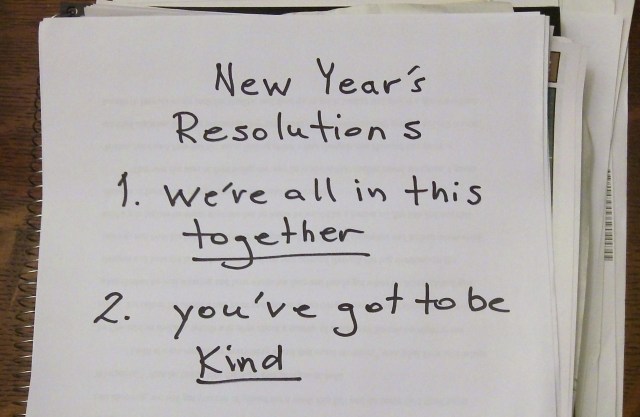 New Year's
Resolutions
1. We're all in this
together
2. you've got to be
Kind